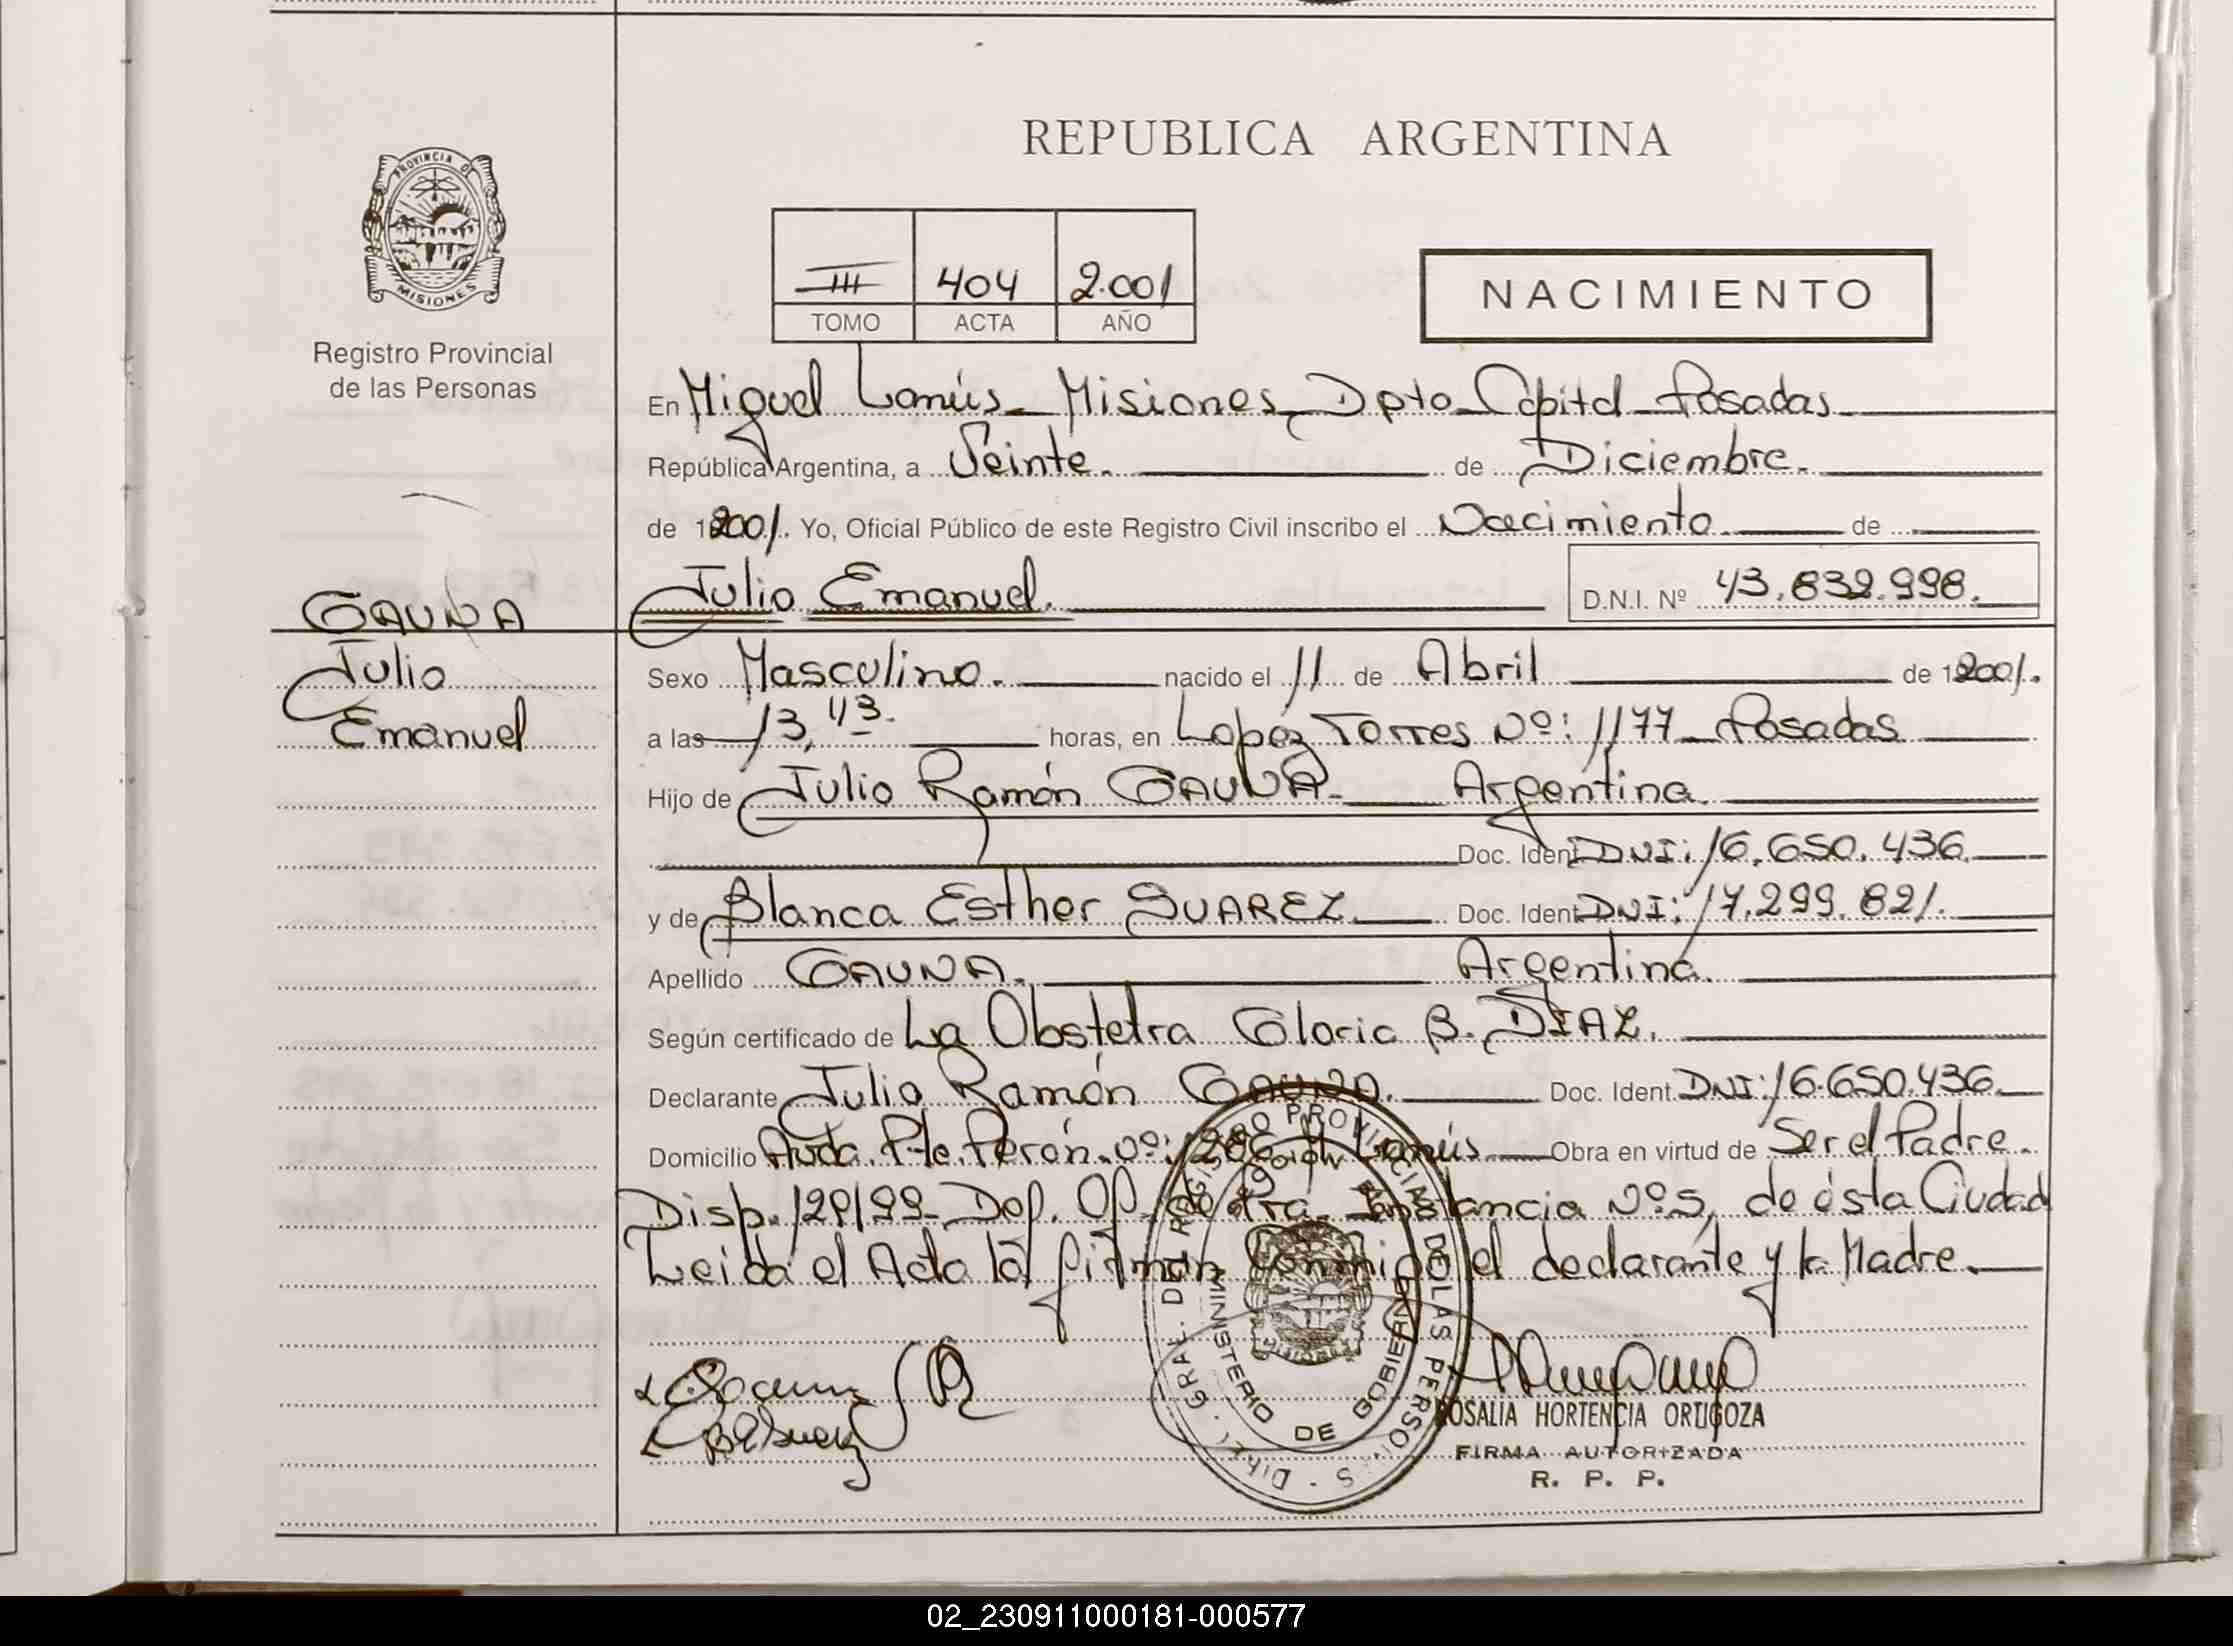 REPUBLICA ARGENTINA
PROVINCIA DE
MISIONES
Registro Provincial
de las Personas
III 404 2.001
TOMO ACTA AÑO
NACIMIENTO
En Miguel Lanús - Misiones, Dpto Capital Posadas
República Argentina, a Veinte. de Diciembre.
de 2001. Yo, Oficial Público de este Registro Civil inscribo el Nacimiento de
GAUNA
Julio Emanuel. D.N.I. Nº 43.832.998.
Julio
Emanuel
Sexo Masculino. nacido el 11 de Abril de 2001.
a las 13,43. horas, en Lopez Torres Nº: 1177 - Posadas
Hijo de Julio Ramón GAUNA - Argentina.
Doc. Ident. DNI: 16.650.436.
y de Blanca Esther SUAREZ. Doc. Ident. DNI: 17.299.821.
Apellido GAUNA. Argentina.
Según certificado de La Obstetra Gloria B. DIAZ.
Declarante Julio Ramón GAUNA. Doc. Ident. DNI: 16.650.436.
Domicilio Avda. Pte. Perón. Nº: Lanús Obra en virtud de Ser el Padre.
Disp. 129/99 - Def. Of. de 1ra. Instancia Nº 5, de ésta Ciudad
Leida el Acta la firman Conmigo el declarante y la Madre.
DIREC. GRAL. DEL REGISTRO PROVINCIAL DE LAS PERSONAS
MINISTERIO DE GOBIERNO
ROSALIA HORTENCIA ORTIGOZA
FIRMA AUTORIZADA
R. P. P.
02_230911000181-000577